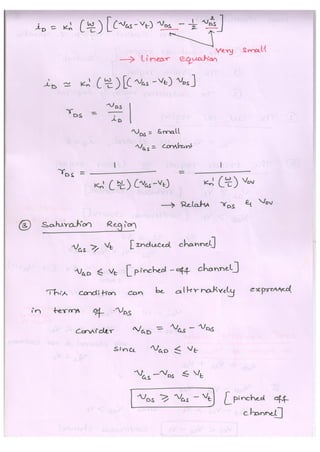 i_D = K_n' (W/L) [(V_GS - V_t) V_DS - 1/2 V_DS^2]
very small
→ linear equation
i_D ≃ K_n' (W/L) [(V_GS - V_t) V_DS]
r_DS = V_DS / i_D |
V_DS = Small
V_GS = constant
r_DS = 1 / K_n' (W/L) (V_GS - V_t) = 1 / K_n' (W/L) V_OV
→ Relates r_DS & V_OV
③ Saturation Region
V_GS ≥ V_t [Induced channel]
V_GD ≤ V_t [pinched-off channel]
This condition can be alternatively expressed
in terms of V_DS
consider V_GD = V_GS - V_DS
since V_GD ≤ V_t
V_GS - V_DS ≤ V_t
V_DS ≥ V_GS - V_t [pinched off
channel]